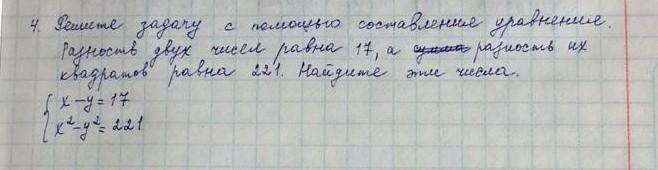 4. Решите задачу с помощью составления уравнения.
Разность двух чисел равна 17, а сумма разность их
квадратов равна 221. Найдите эти числа.
x - y = 17
x² - y² = 221